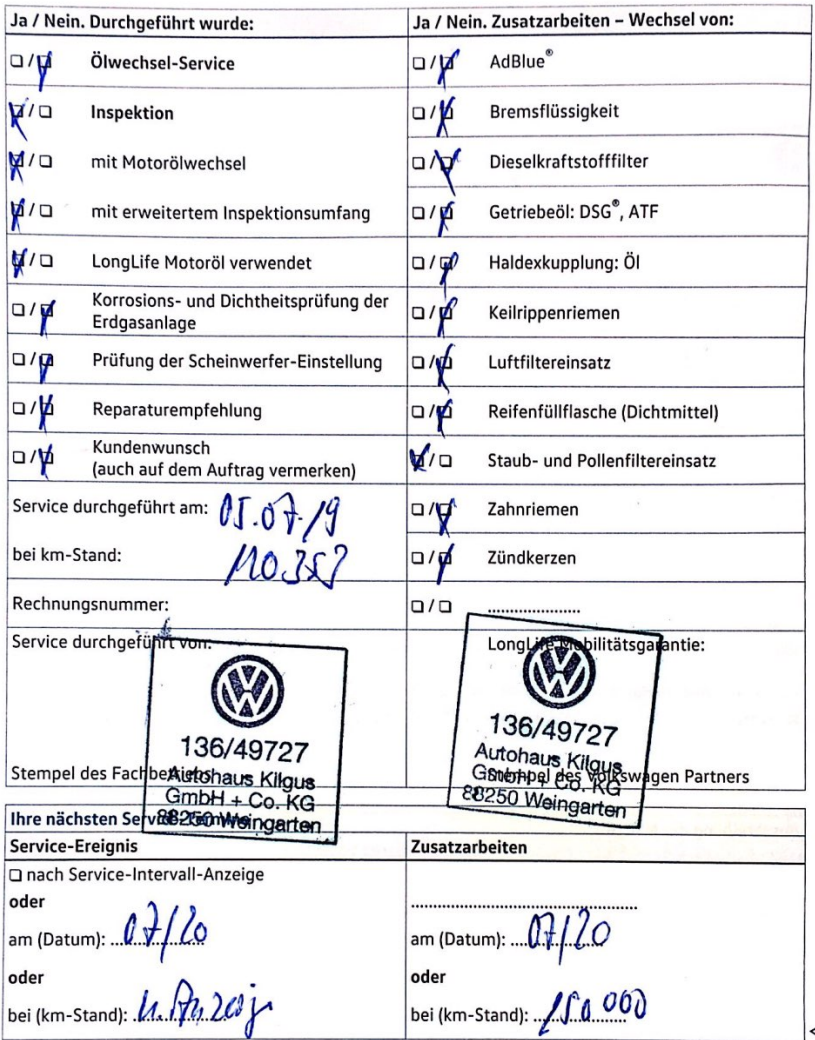 Ja / Nein. Durchgeführt wurde:
Ja / Nein. Zusatzarbeiten – Wechsel von:
☐ / ☒ Ölwechsel-Service
☐ / ☒ AdBlue®
☒ / ☐ Inspektion
☐ / ☒ Bremsflüssigkeit
☒ / ☐ mit Motorölwechsel
☐ / ☒ Dieselkraftstofffilter
☒ / ☐ mit erweitertem Inspektionsumfang
☐ / ☒ Getriebeöl: DSG®, ATF
☒ / ☐ LongLife Motoröl verwendet
☐ / ☒ Haldexkupplung: Öl
☐ / ☒ Korrosions- und Dichtheitsprüfung der
Erdgasanlage
☐ / ☒ Keilrippenriemen
☐ / ☒ Prüfung der Scheinwerfer-Einstellung
☐ / ☒ Luftfiltereinsatz
☐ / ☒ Reparaturempfehlung
☐ / ☒ Reifenfüllflasche (Dichtmittel)
☐ / ☒ Kundenwunsch
(auch auf dem Auftrag vermerken)
☒ / ☐ Staub- und Pollenfiltereinsatz
Service durchgeführt am: 05.07.19
☐ / ☒ Zahnriemen
bei km-Stand:
☐ / ☒ Zündkerzen
Rechnungsnummer:
☐ / ☐ ......................
Service durchgeführt von:
LongLife Mobilitätsgarantie:
136/49727
Autohaus Kilgus
GmbH + Co. KG
88250 Weingarten
136/49727
Autohaus Kilgus
GmbH + Co. KG
88250 Weingarten
Stempel des Fachbetriebs
Stempel des Volkswagen Partners
Ihre nächsten Service-Termine
Service-Ereignis
Zusatzarbeiten
☐ nach Service-Intervall-Anzeige
oder
am (Datum): 07/20
am (Datum): 07/20
oder
oder
bei (km-Stand): n. Anzeige
bei (km-Stand): 150.000